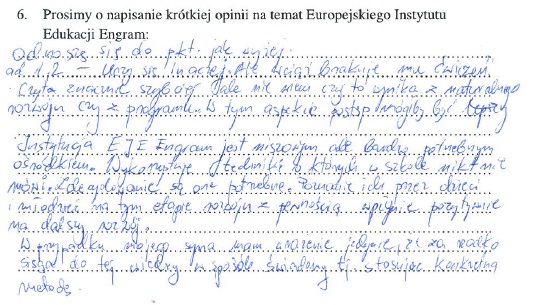 6. Prosimy o napisanie krótkiej opinii na temat Europejskiego Instytutu
Edukacji Engram:
Odnoszę się do pkt. jak wyżej.
ad. 1,2 – Uczy się inaczej. Ale wciąż brakuje mu ćwiczeń.
Czyta znacznie szybciej. Jale nie wiem czy to wynika z naturalnego
rozwoju czy z programu. W tym aspekcie postęp mógłby być lepszy
Instytucja EIE Engram jest niszowym ale bardzo potrzebnym
ośrodkiem. Wykorzystuje techniki o których w szkole nikt nie
mówi. Zdecydowanie są one potrzebne. Poznanie ich przez dzieci
i młodzież na tym etapie rozwoju z pewnością wpłynie pozytywnie
na dalszy rozwój.
W przypadku mojego syna mam wrażenie jedynie, że za rzadko
sięga do tej wiedzy w sposób świadomy tj. stosując konkretną
metodę.